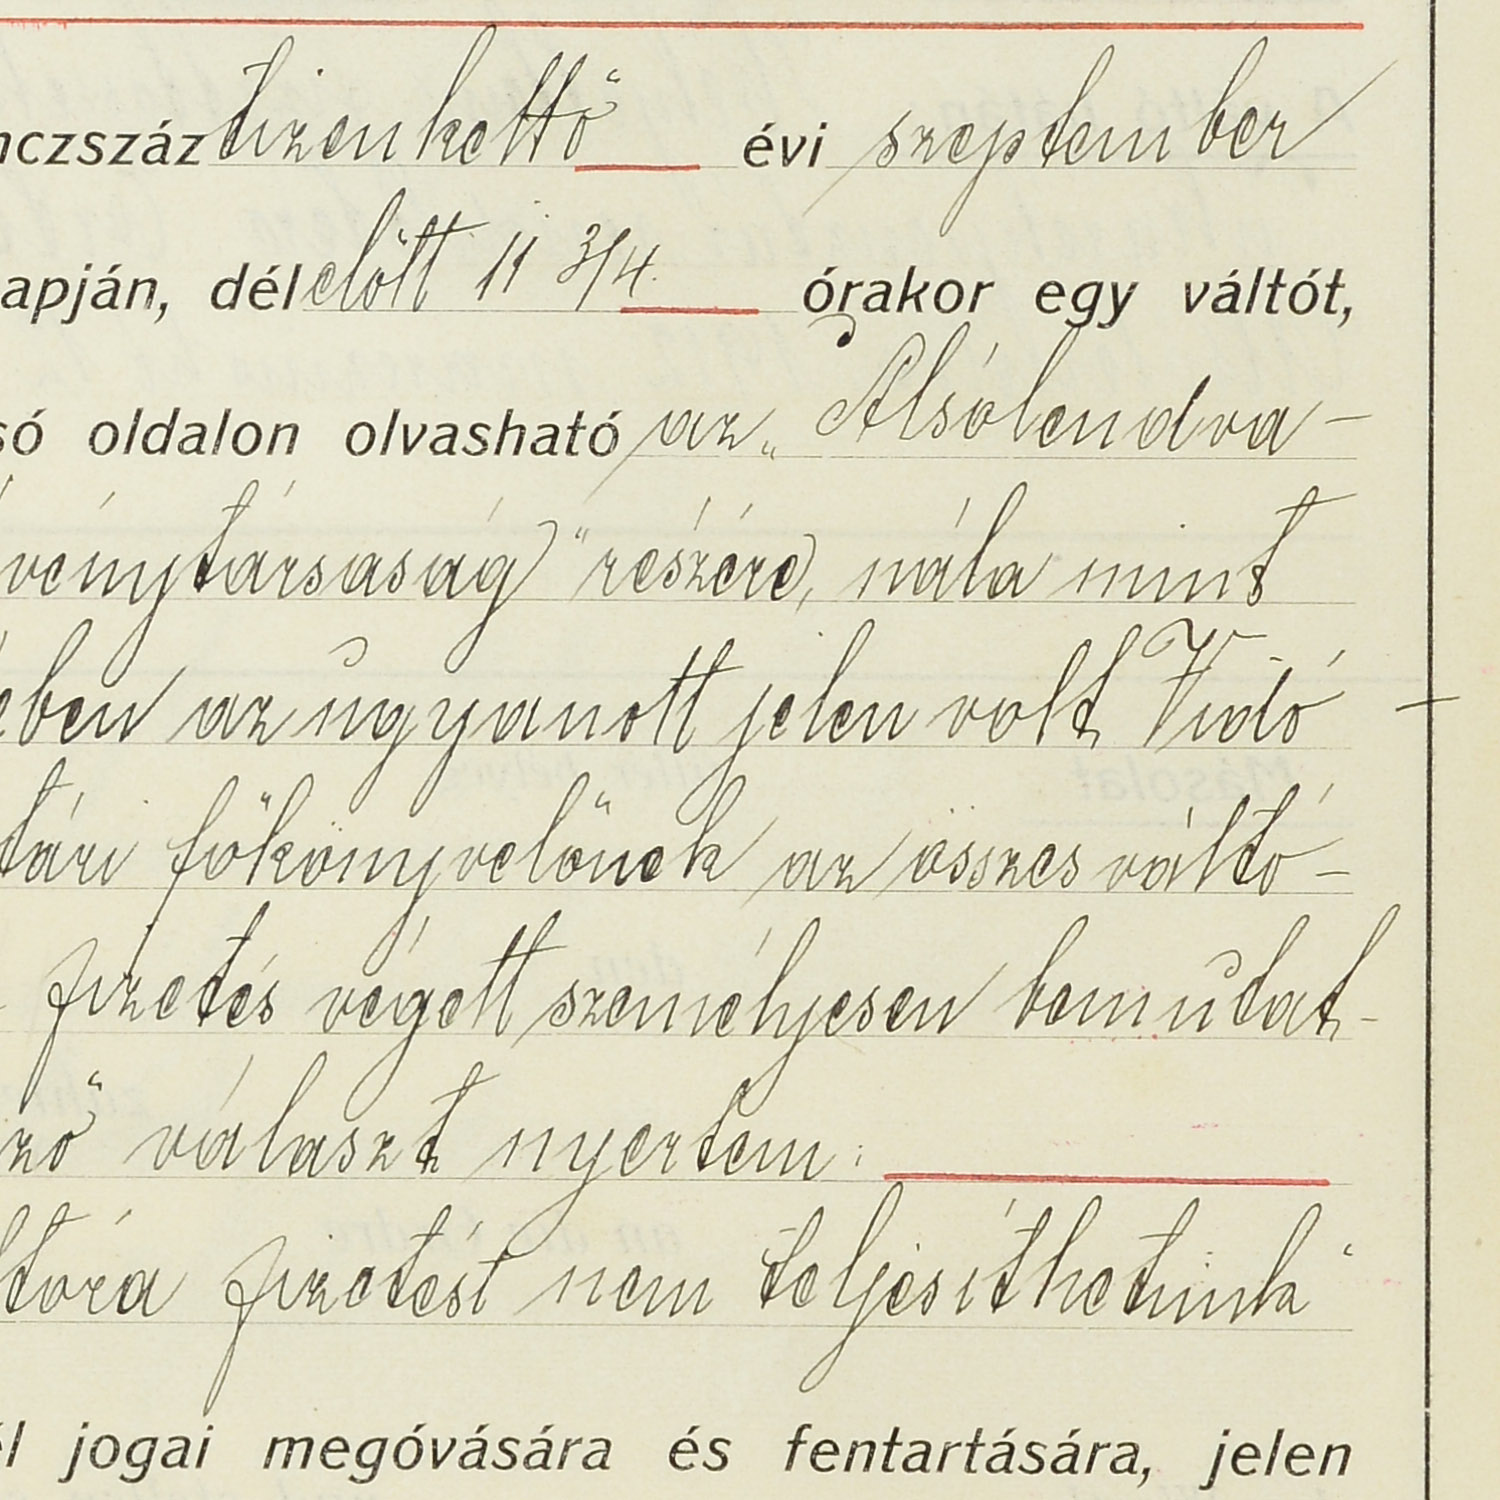 nczszáz tizenkettő évi szeptember
apján, délelőtt 11 3/4 órakor egy váltót,
só oldalon olvasható az „Alsólendva-
vénytársaság" részére, nála mint
ében az ugyanott jelen volt Vidó
tári főkönyvelőnek az összes váltó-
fizetés végett személyesen bemutat-
ző választ nyertem:
tóra fizetést nem teljesíthetünk"
él jogai megóvására és fentartására, jelen